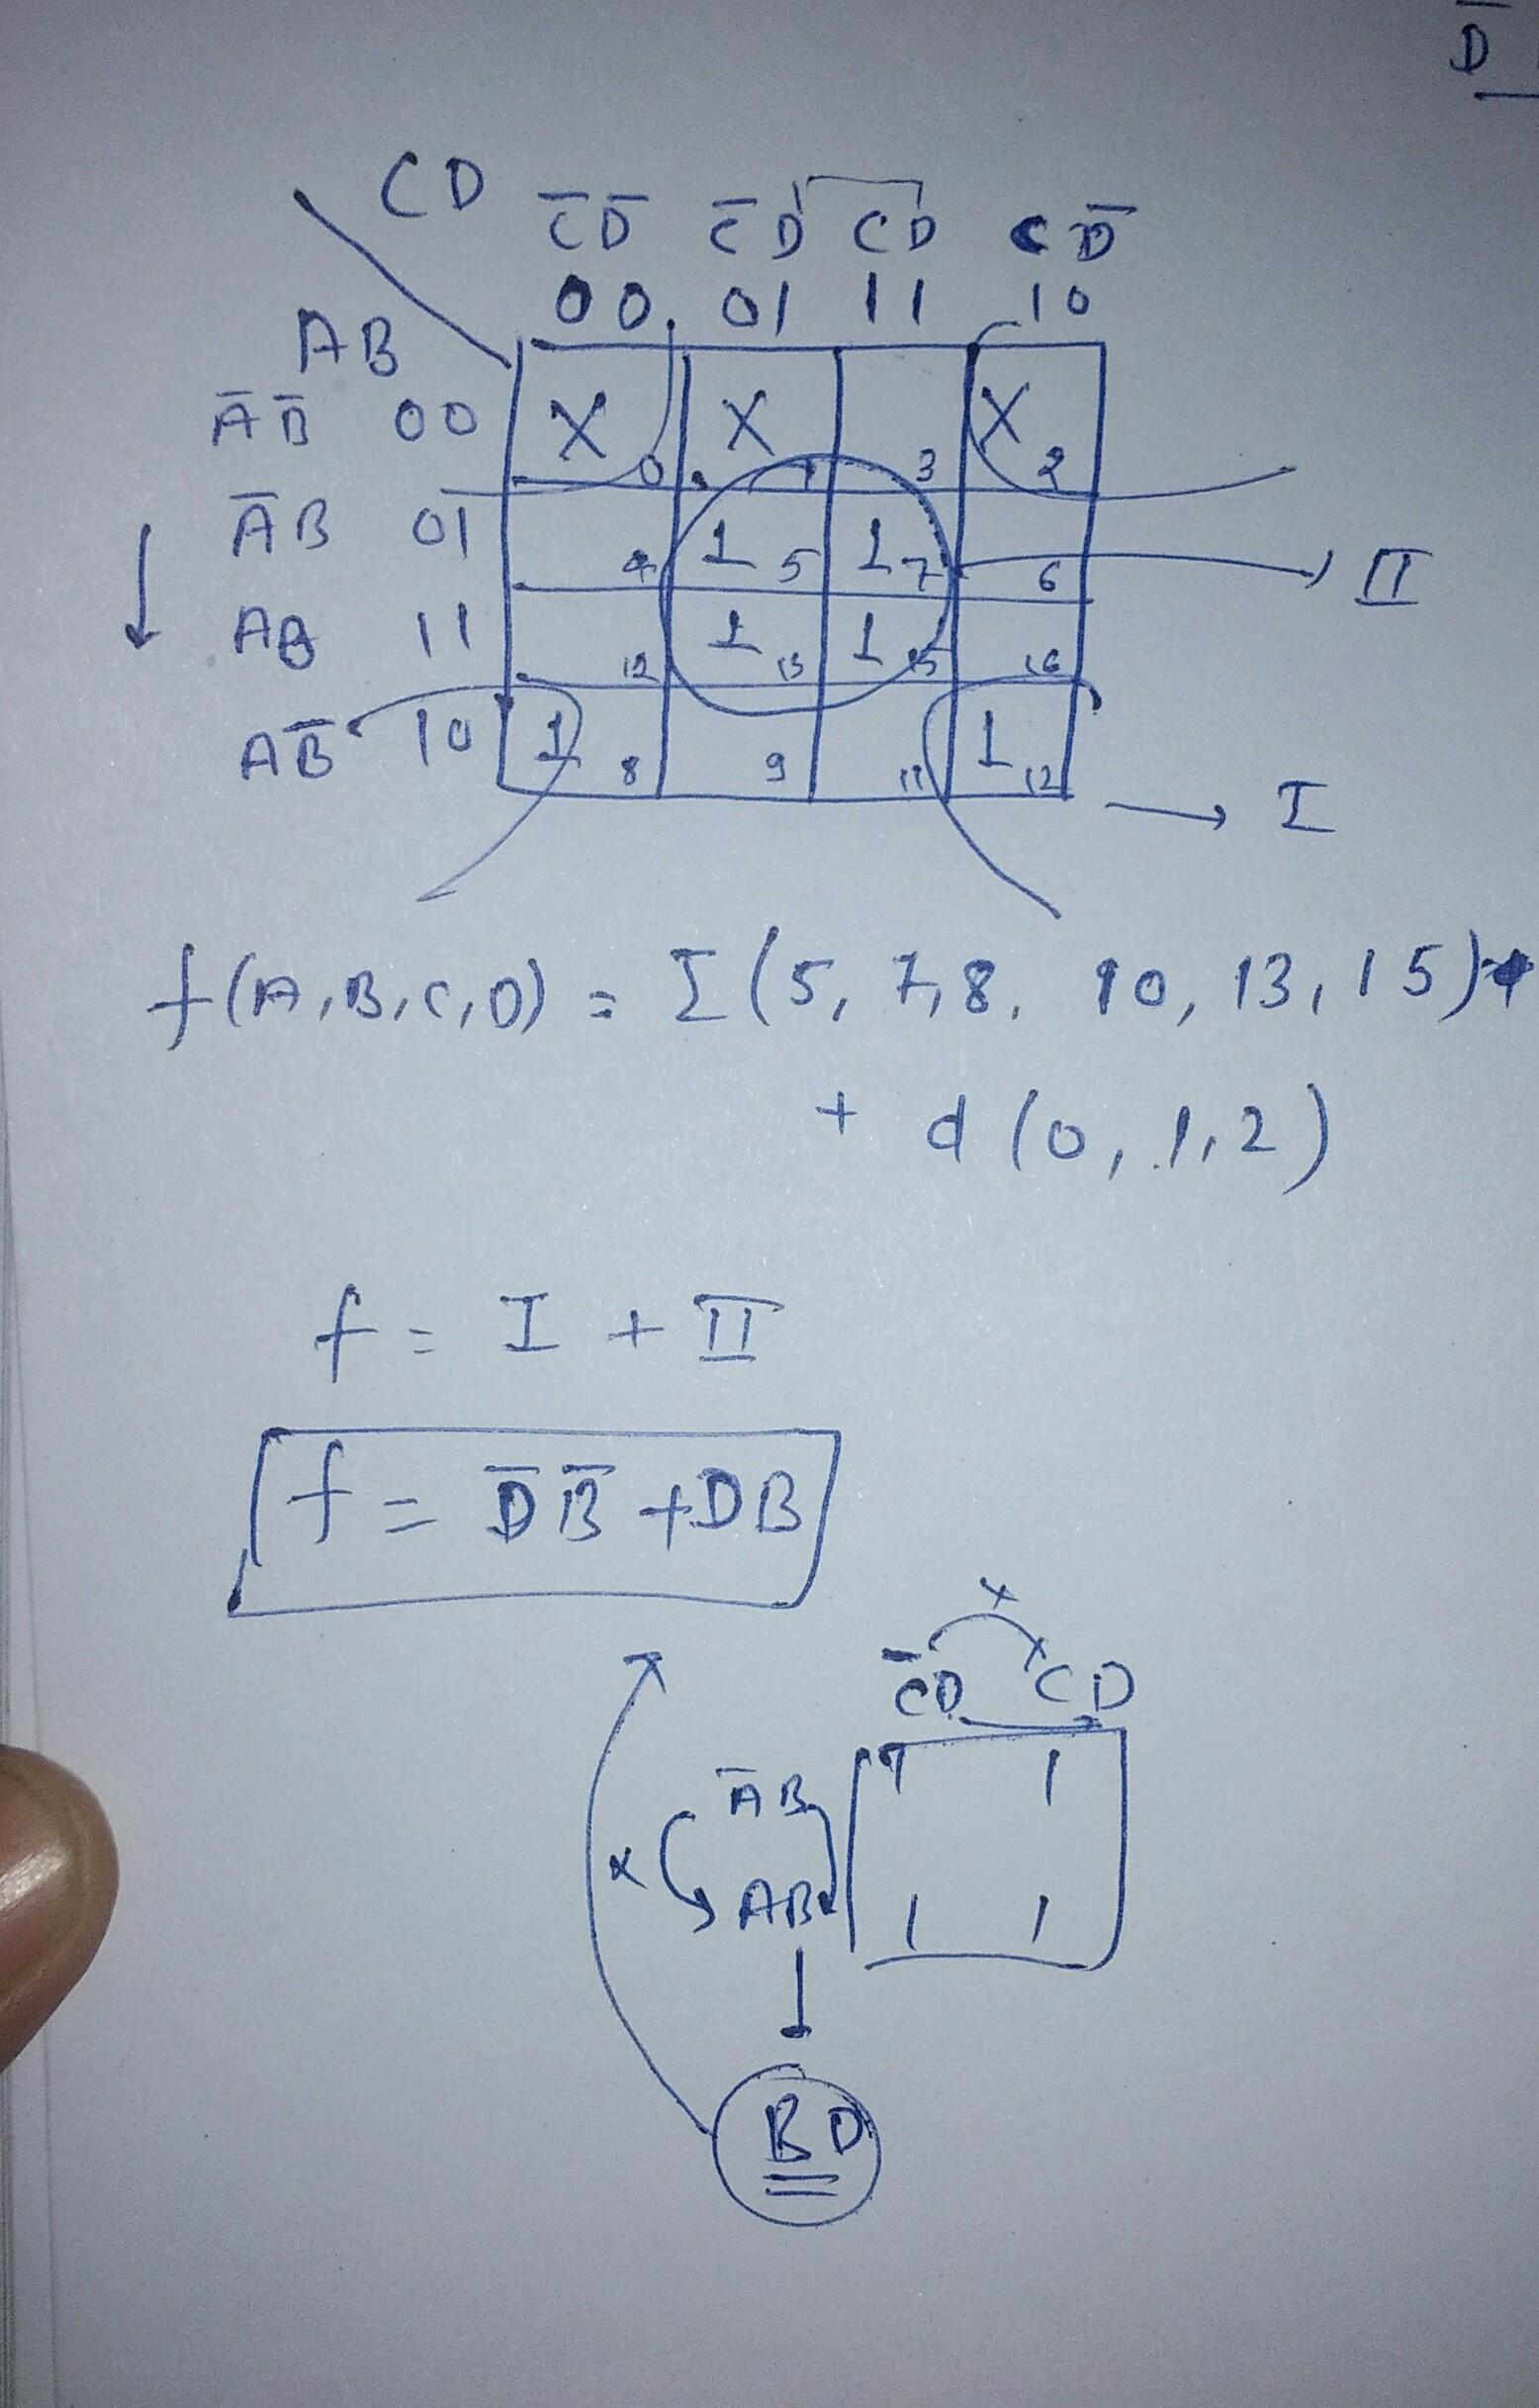 D̅
CD
C̅D̅ C̅D CD CD̅
00 01 11 10
AB
A̅B̅ 00 X 0 X 1 3 X 2
A̅B 01 4 1 5 1 7 6 II
AB 11 12 1 13 1 15 16
AB̅ 10 1 8 9 11 1 12
I
f(A,B,C,D) = Σ(5, 7,8, 10, 13, 15)
+ d (0, 1,2)
f = I + II
f = D̅B̅ + DB
x
C̅D CD
A̅B 1 1
x
AB 1 1
BD